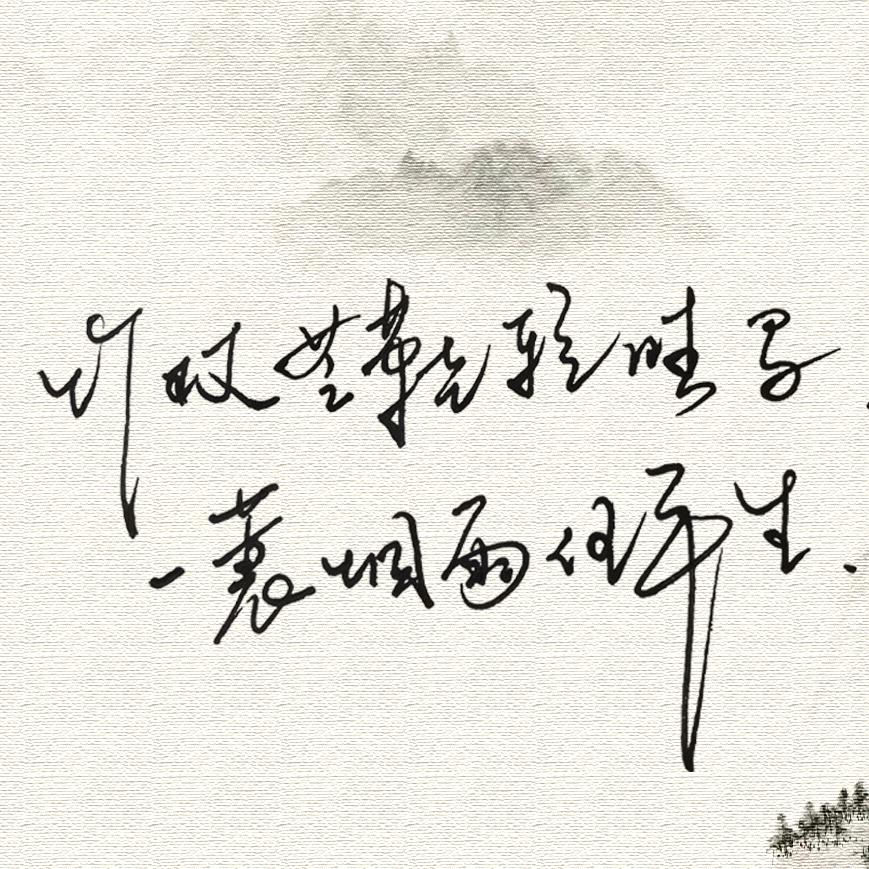 竹杖芒鞋轻胜马，
一蓑烟雨任平生.